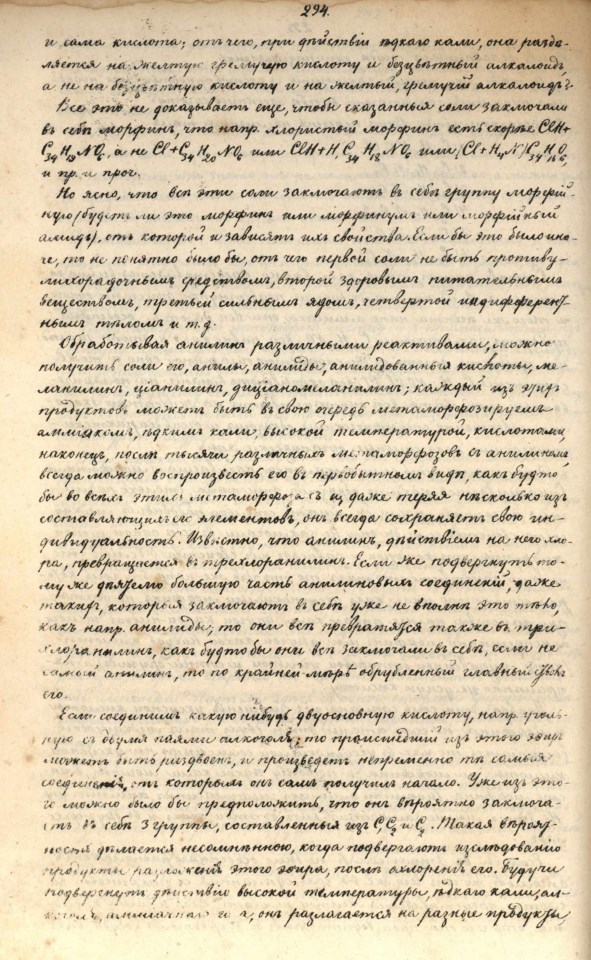 294.
и сама кислота; отъ чего, при дѣйствіи ѣдкаго кали, она раздѣ-
ляется на желтую гремучую кислоту и безцвѣтный алкалоидъ,
а не на безцвѣтную кислоту и на желтый, гремучій алкалоидъ?
Все это не доказываетъ еще, чтобы сказанныя соли заключали
въ себѣ морфинъ, что напр. хлористый морфинъ есть скорѣе ClH+
C34H19NO6, а не Cl+C34H20NO6 или ClH+H,C34H18NO6 или (Cl+H4N)C34H16O6,
и пр. и проч.
Но ясно, что всѣ эти соли заключаютъ въ себѣ группу морфій-
ную (будетъ ли это морфинъ или морфинумъ или морфійный
амидъ), отъ которой и зависятъ ихъ свойства. Если бы это было ина-
че, то не понятно было бы, отъ чего первой соли не быть противу-
лихорадочнымъ средствомъ, второй здоровымъ питательнымъ
веществомъ, третьей сильнымъ ядомъ, четвертой индифферент-
нымъ тѣломъ и т. д.
Обработывая анилинъ различными реактивами, можно
получить соли его, анилы, анилиды, анилидованныя кислоты, ме-
ланилинъ, ціанилинъ, диціаномеланилинъ; каждый изъ этихъ
продуктовъ можетъ быть въ свою очередь метаморфозируемъ
амміакомъ, ѣдкимъ кали, высокой температурой, кислотами,
наконецъ, послѣ тысячи различныхъ метаморфозовъ съ анилиномъ
всегда можно воспроизвесть его въ первобытномъ видѣ, какъ будто
бы во всѣхъ этихъ метаморфозахъ и даже теряя нѣсколько изъ
составляющихъ его элементовъ, онъ всегда сохраняетъ свою ин-
дивидуальность. Извѣстно, что анилинъ, дѣйствіемъ на него хло-
ра, превращается въ трехлоранилинъ. Если же подвергнуть то-
му же дѣятелю большую часть анилиновыхъ соединеній, даже
такихъ, которыя заключаютъ въ себѣ уже не вполнѣ это тѣло,
какъ напр. анилиды; то они всѣ превратятся также въ три-
хлоранилинъ, какъ будто бы они всѣ заключали въ себѣ, если не
самый анилинъ, то по крайней мѣрѣ обрубленный главный
его.
Если соединимъ какую нибудь двуосновную кислоту, напр. уголь-
ную съ двумя паями алкоголя; то происшедшій изъ этого эѳиръ
можетъ быть раздвоенъ, и произведетъ непременно тѣ самыя
соединенія, отъ которыхъ онъ самъ получилъ начало. Уже изъ это-
го можно было бы предположить, что онъ вѣроятно заключа-
етъ въ себѣ 3 группы, составленныя изъ C, C2 и C2. Такая вѣроят-
ность дѣлается несомнѣнною, когда подвергаютъ изслѣдованію
продукты разложенія этого эѳира, послѣ охлоренія его. Будучи
подвергнутъ дѣйствію высокой температуры, ѣдкаго кали, ал-
коголя, амміачнаго газа, онъ разлагается на разные продукты,